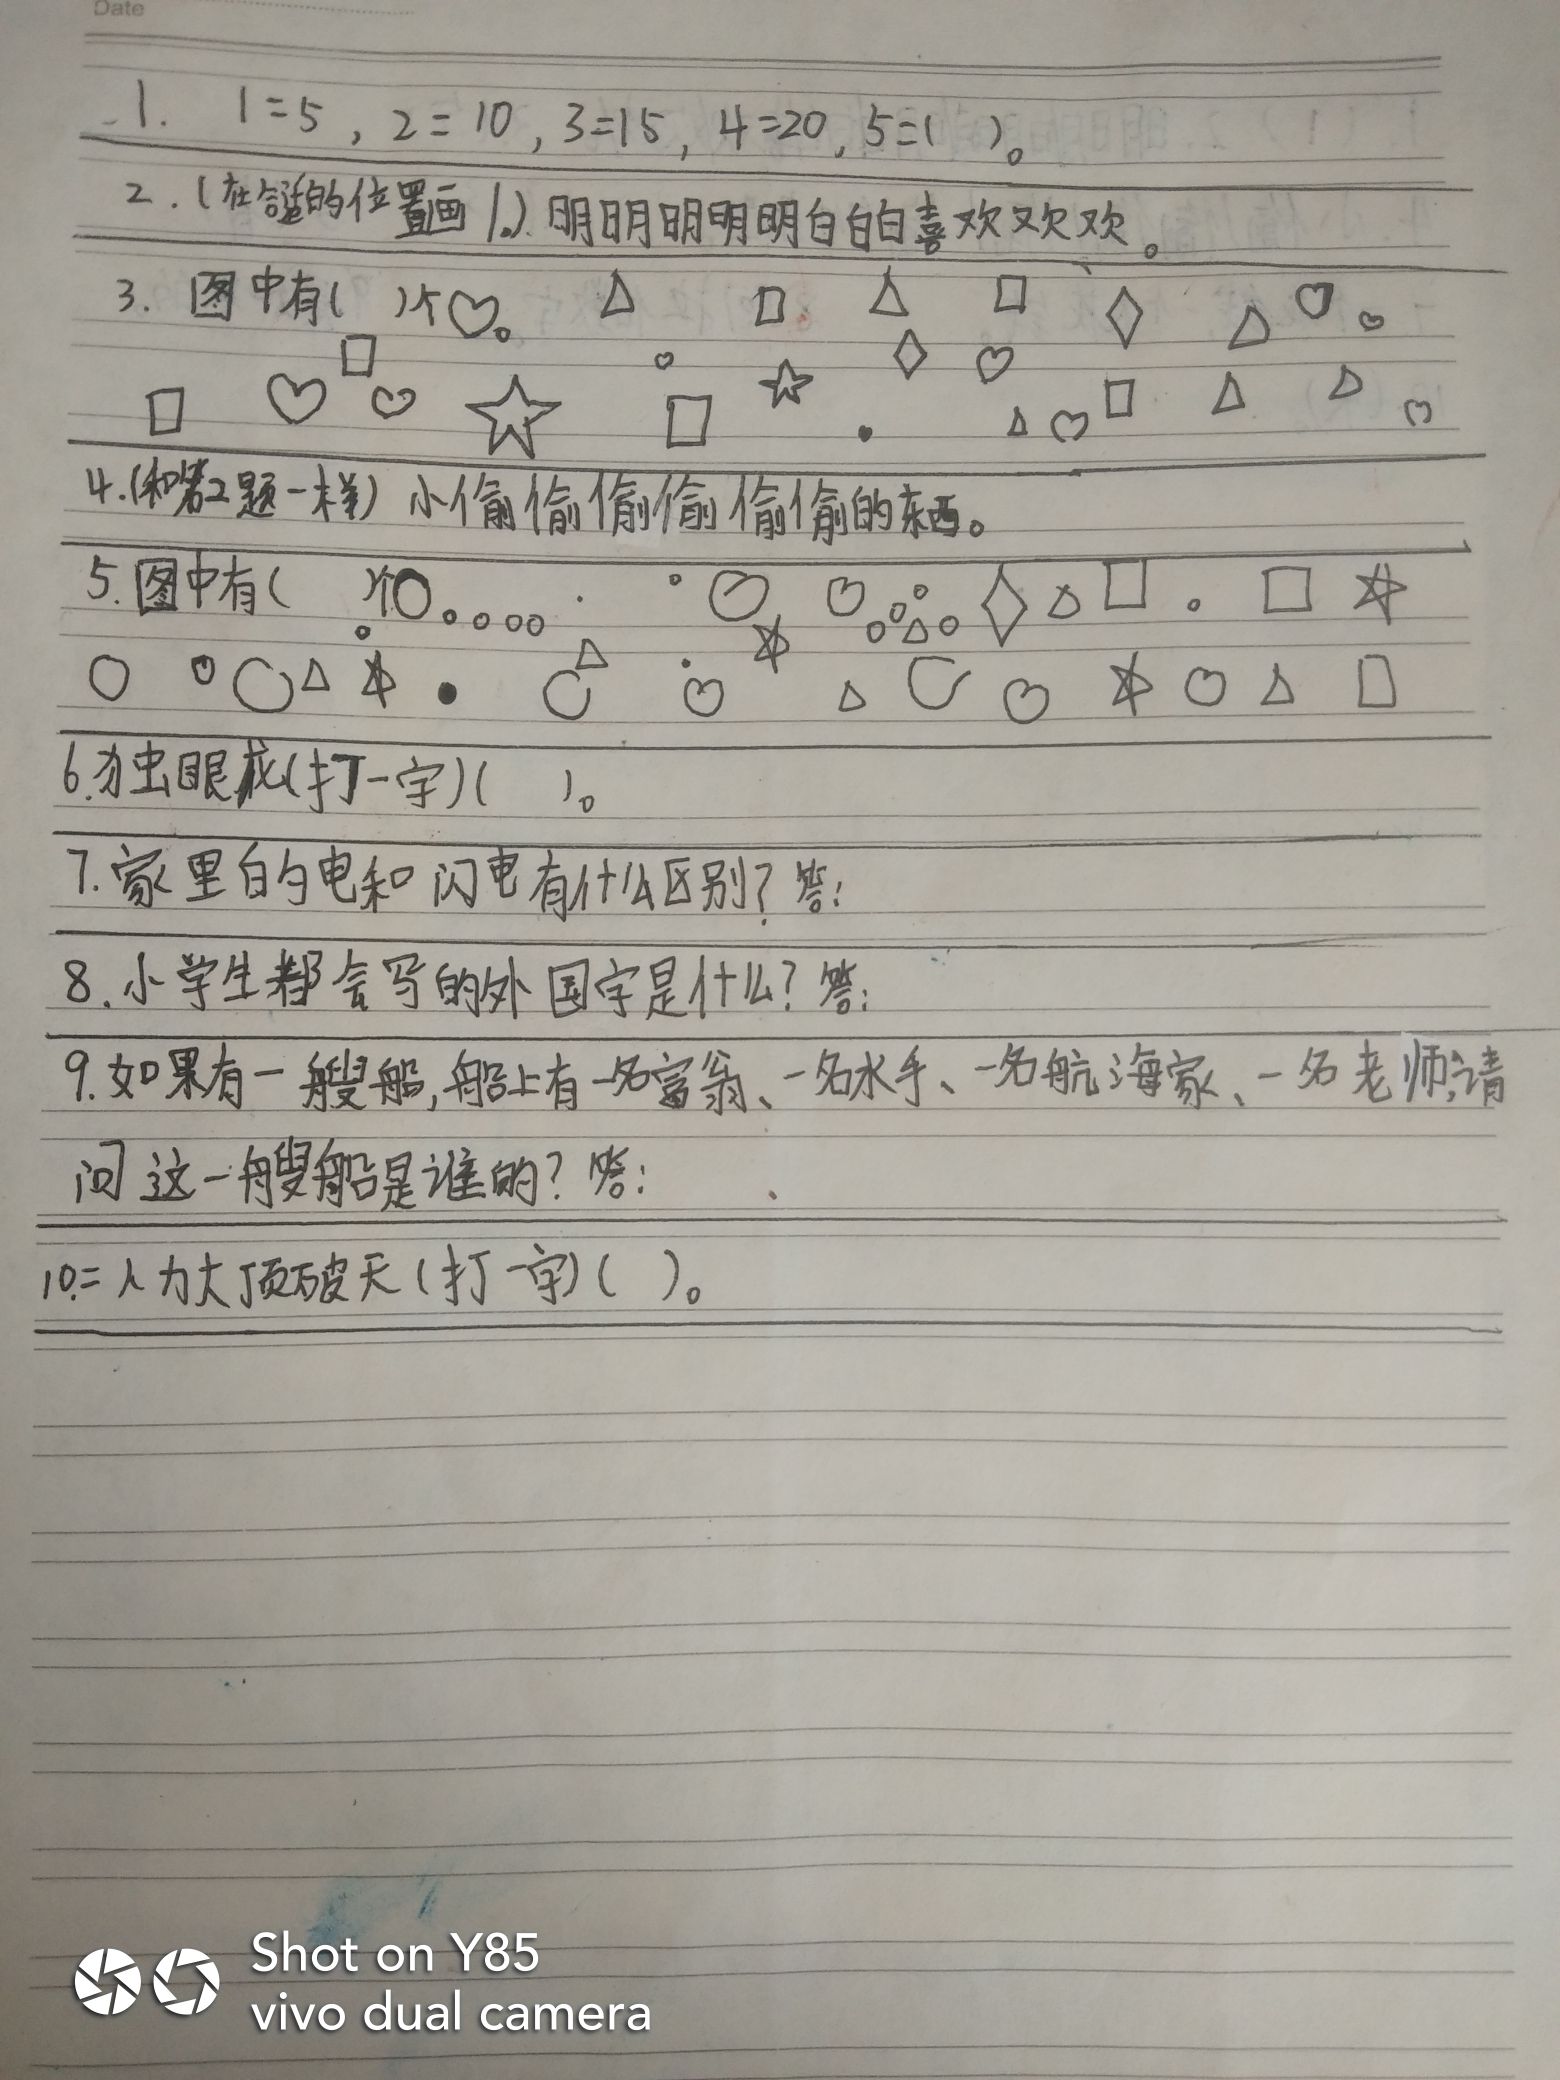 Date
1. 1=5，2=10，3=15，4=20，5=( )。
2.(在合适的位置画\。)明明明明明白白白喜欢欢欢。
3. 图中有( )个♡。
4.(和第2题一样) 小偷偷偷偷偷偷的东西。
5.图中有( )个○
6.独眼龙(打一字)( )。
7.家里的电和闪电有什么区别?答:
8.小学生都会写的外国字是什么?答:
9.如果有一艘船,船上有一名富翁、一名水手、一名航海家、一名老师,请
问这一艘船是谁的?答:
10.二人力大顶破天(打一字)( )。
Shot on Y85
vivo dual camera